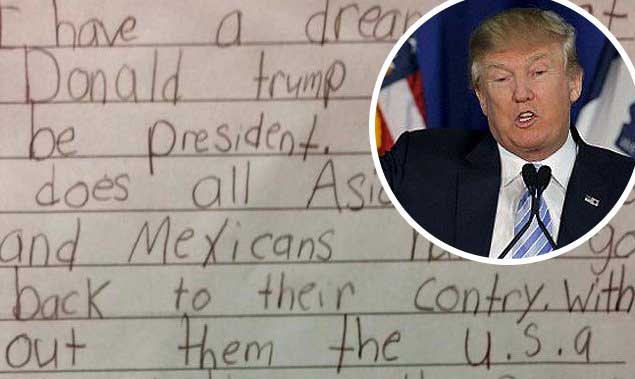 I have a drea
Donald trump
be president.
does all Asi
and Mexicans go
back to their contry. With
out them the U.S.a